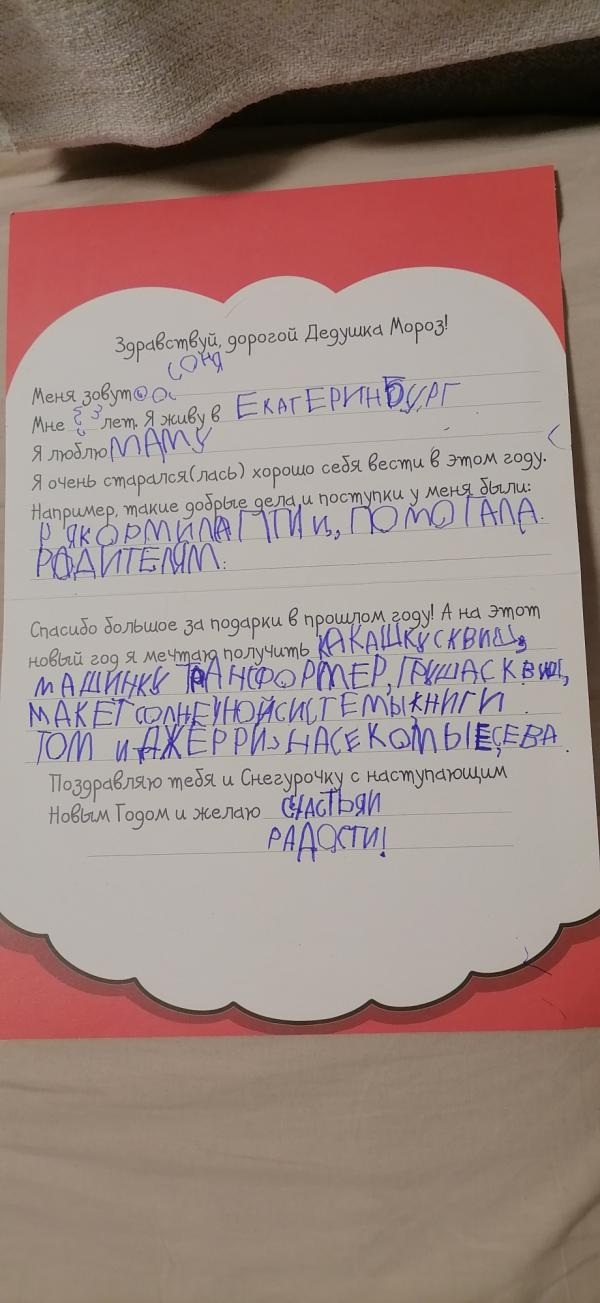 Здравствуй, дорогой Дедушка Мороз!
СОНЯ
Меня зовут
Мне лет. Я живу в ЕКАТЕРИНБУРГ
Я люблю МАМУ
Я очень старался(лась) хорошо себя вести в этом году.
Например, такие добрые дела и поступки у меня были:
Я КОРМИЛА ПТИЦ, ПОМОГАЛА
РОДИТЕЛЯМ.
Спасибо большое за подарки в прошлом году! А на этот
новый год я мечтаю получить КАКАШКУ СКВИШ,
МАШИНКУ ТРАНСФОРМЕР, ГРУША СКВИШ,
МАКЕТ СОЛНЕЧНОЙ СИСТЕМЫ КНИГИ
ТОМ И ДЖЕРРИ НАСЕКОМЫЕ СЕВА.
Поздравляю тебя и Снегурочку с наступающим
Новым Годом и желаю СЧАСТЬЯ И
РАДОСТИ!